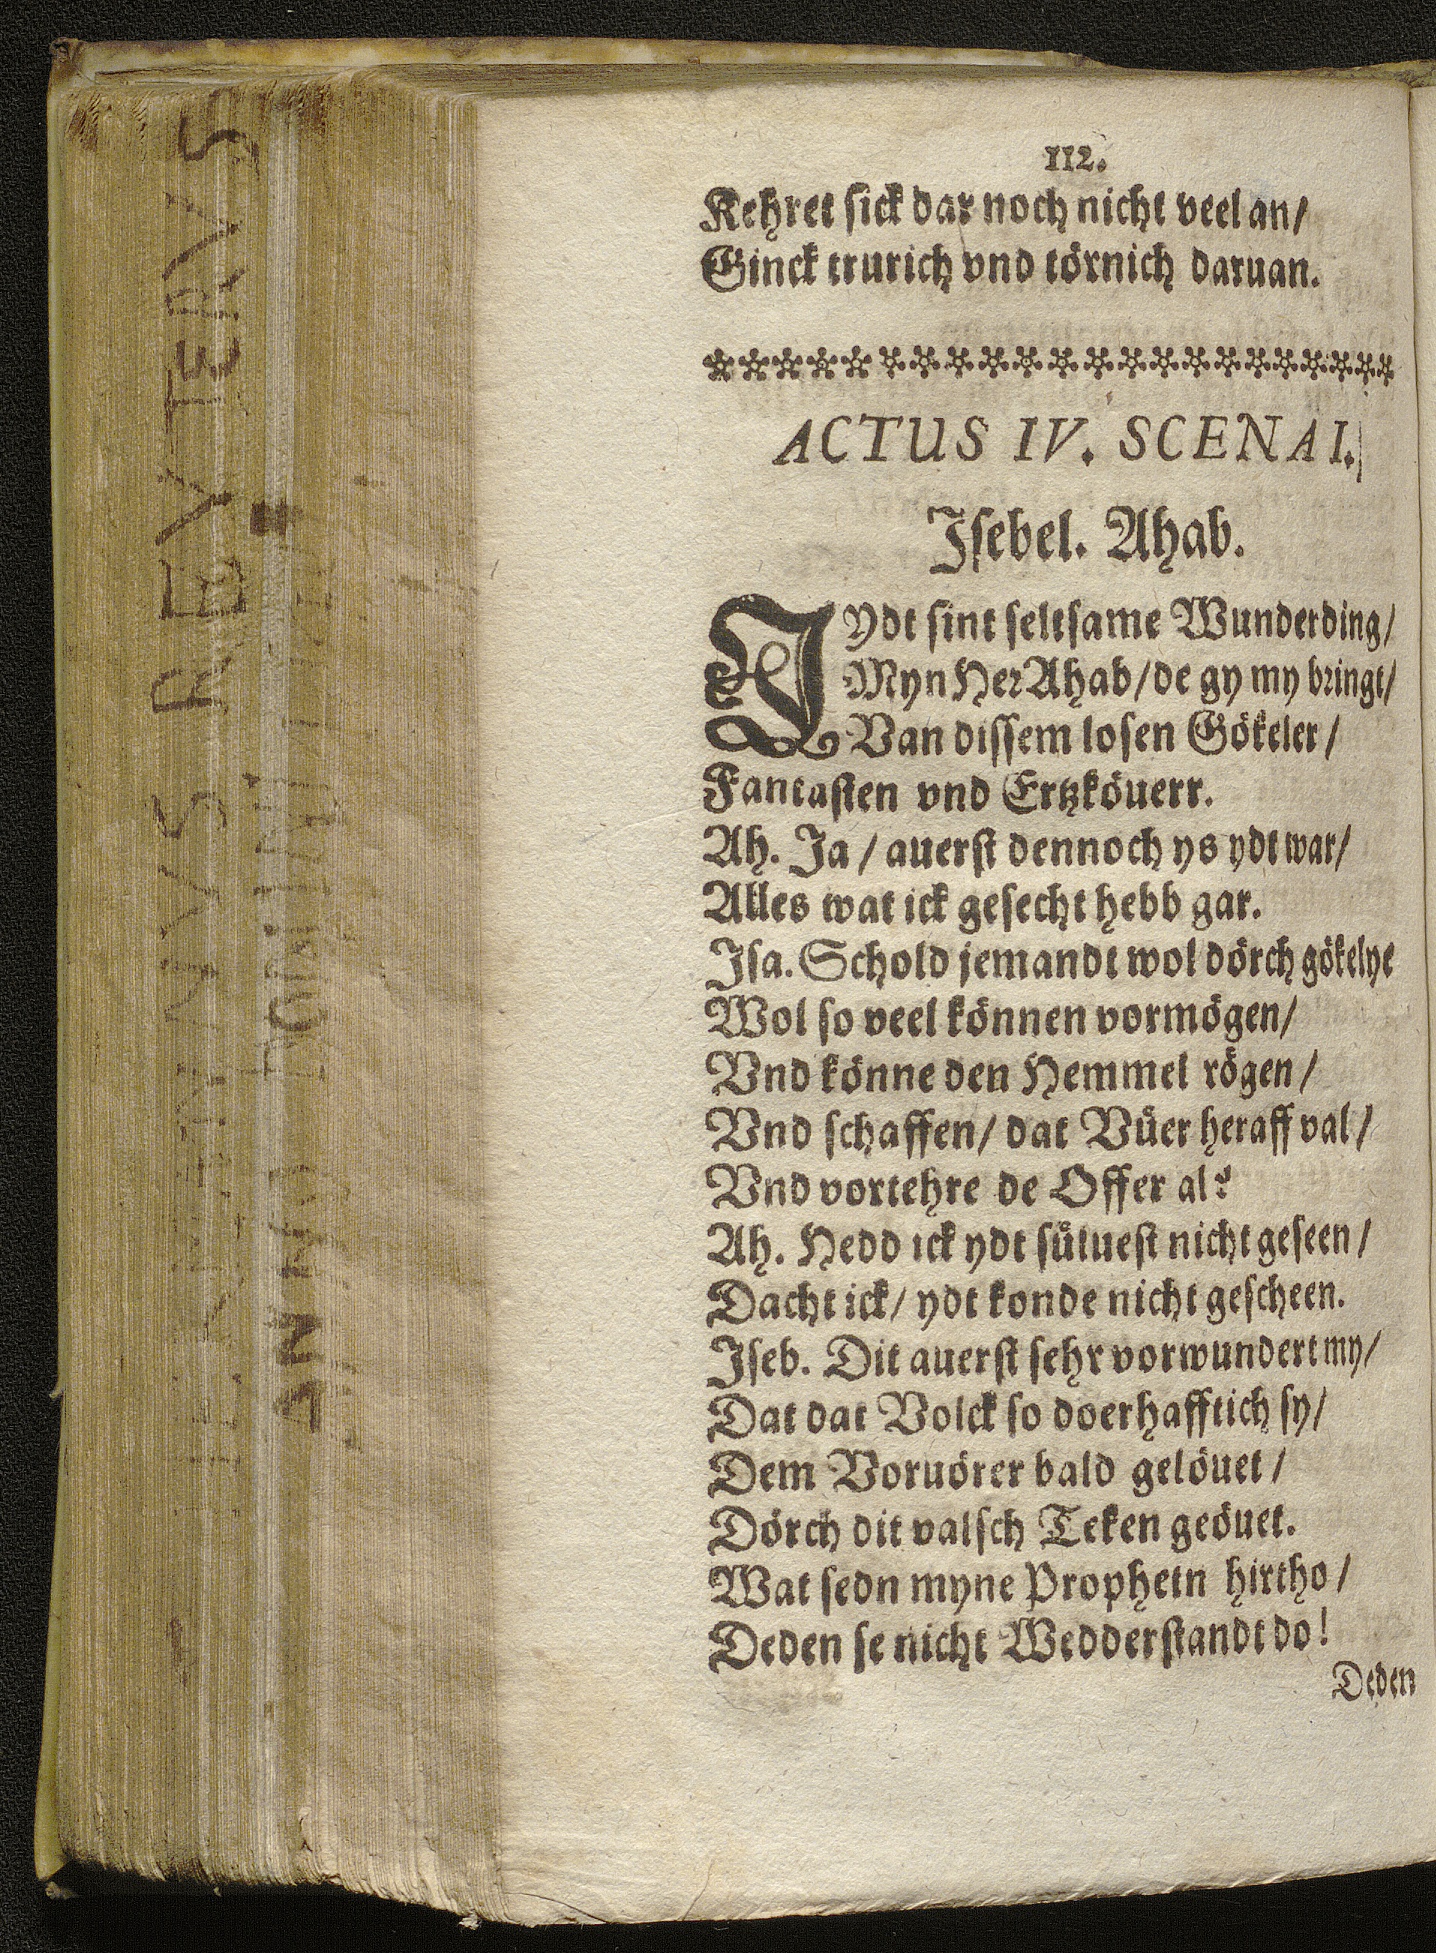 112.
Kehret sick dar noch nicht veel an/
Ginck trurich vnd törnich daruan.
ACTUS IV. SCENA I.
Isebel. Ahab.
Jydt sint seltsame Wunderding/
Myn Her Ahab/ de gy my bringt/
Van dissem losen Gökeler/
Fantasten vnd Ertzköuerr.
Ah. Ja / auerst dennoch ys ydt war/
Alles wat ick gesecht hebb gar.
Isa. Schold jemandt wol dörch gökelye
Wol so veel können vormögen/
Vnd könne den Hemmel rögen/
Vnd schaffen/ dat Vüer heraff val/
Vnd vortehre de Offer al?
Ah. Hedd ick ydt süluest nicht geseen/
Dacht ick/ ydt konde nicht gescheen.
Iseb. Dit auerst sehr vorwundert my/
Dat dat Volck so doerhafftich sy/
Dem Voruörer bald gelöuet/
Dörch dit valsch Teken geöuet.
Wat sedn myne Prophetn hirtho/
Deden se nicht Wedderstandt do!
Deden
REVTERVS